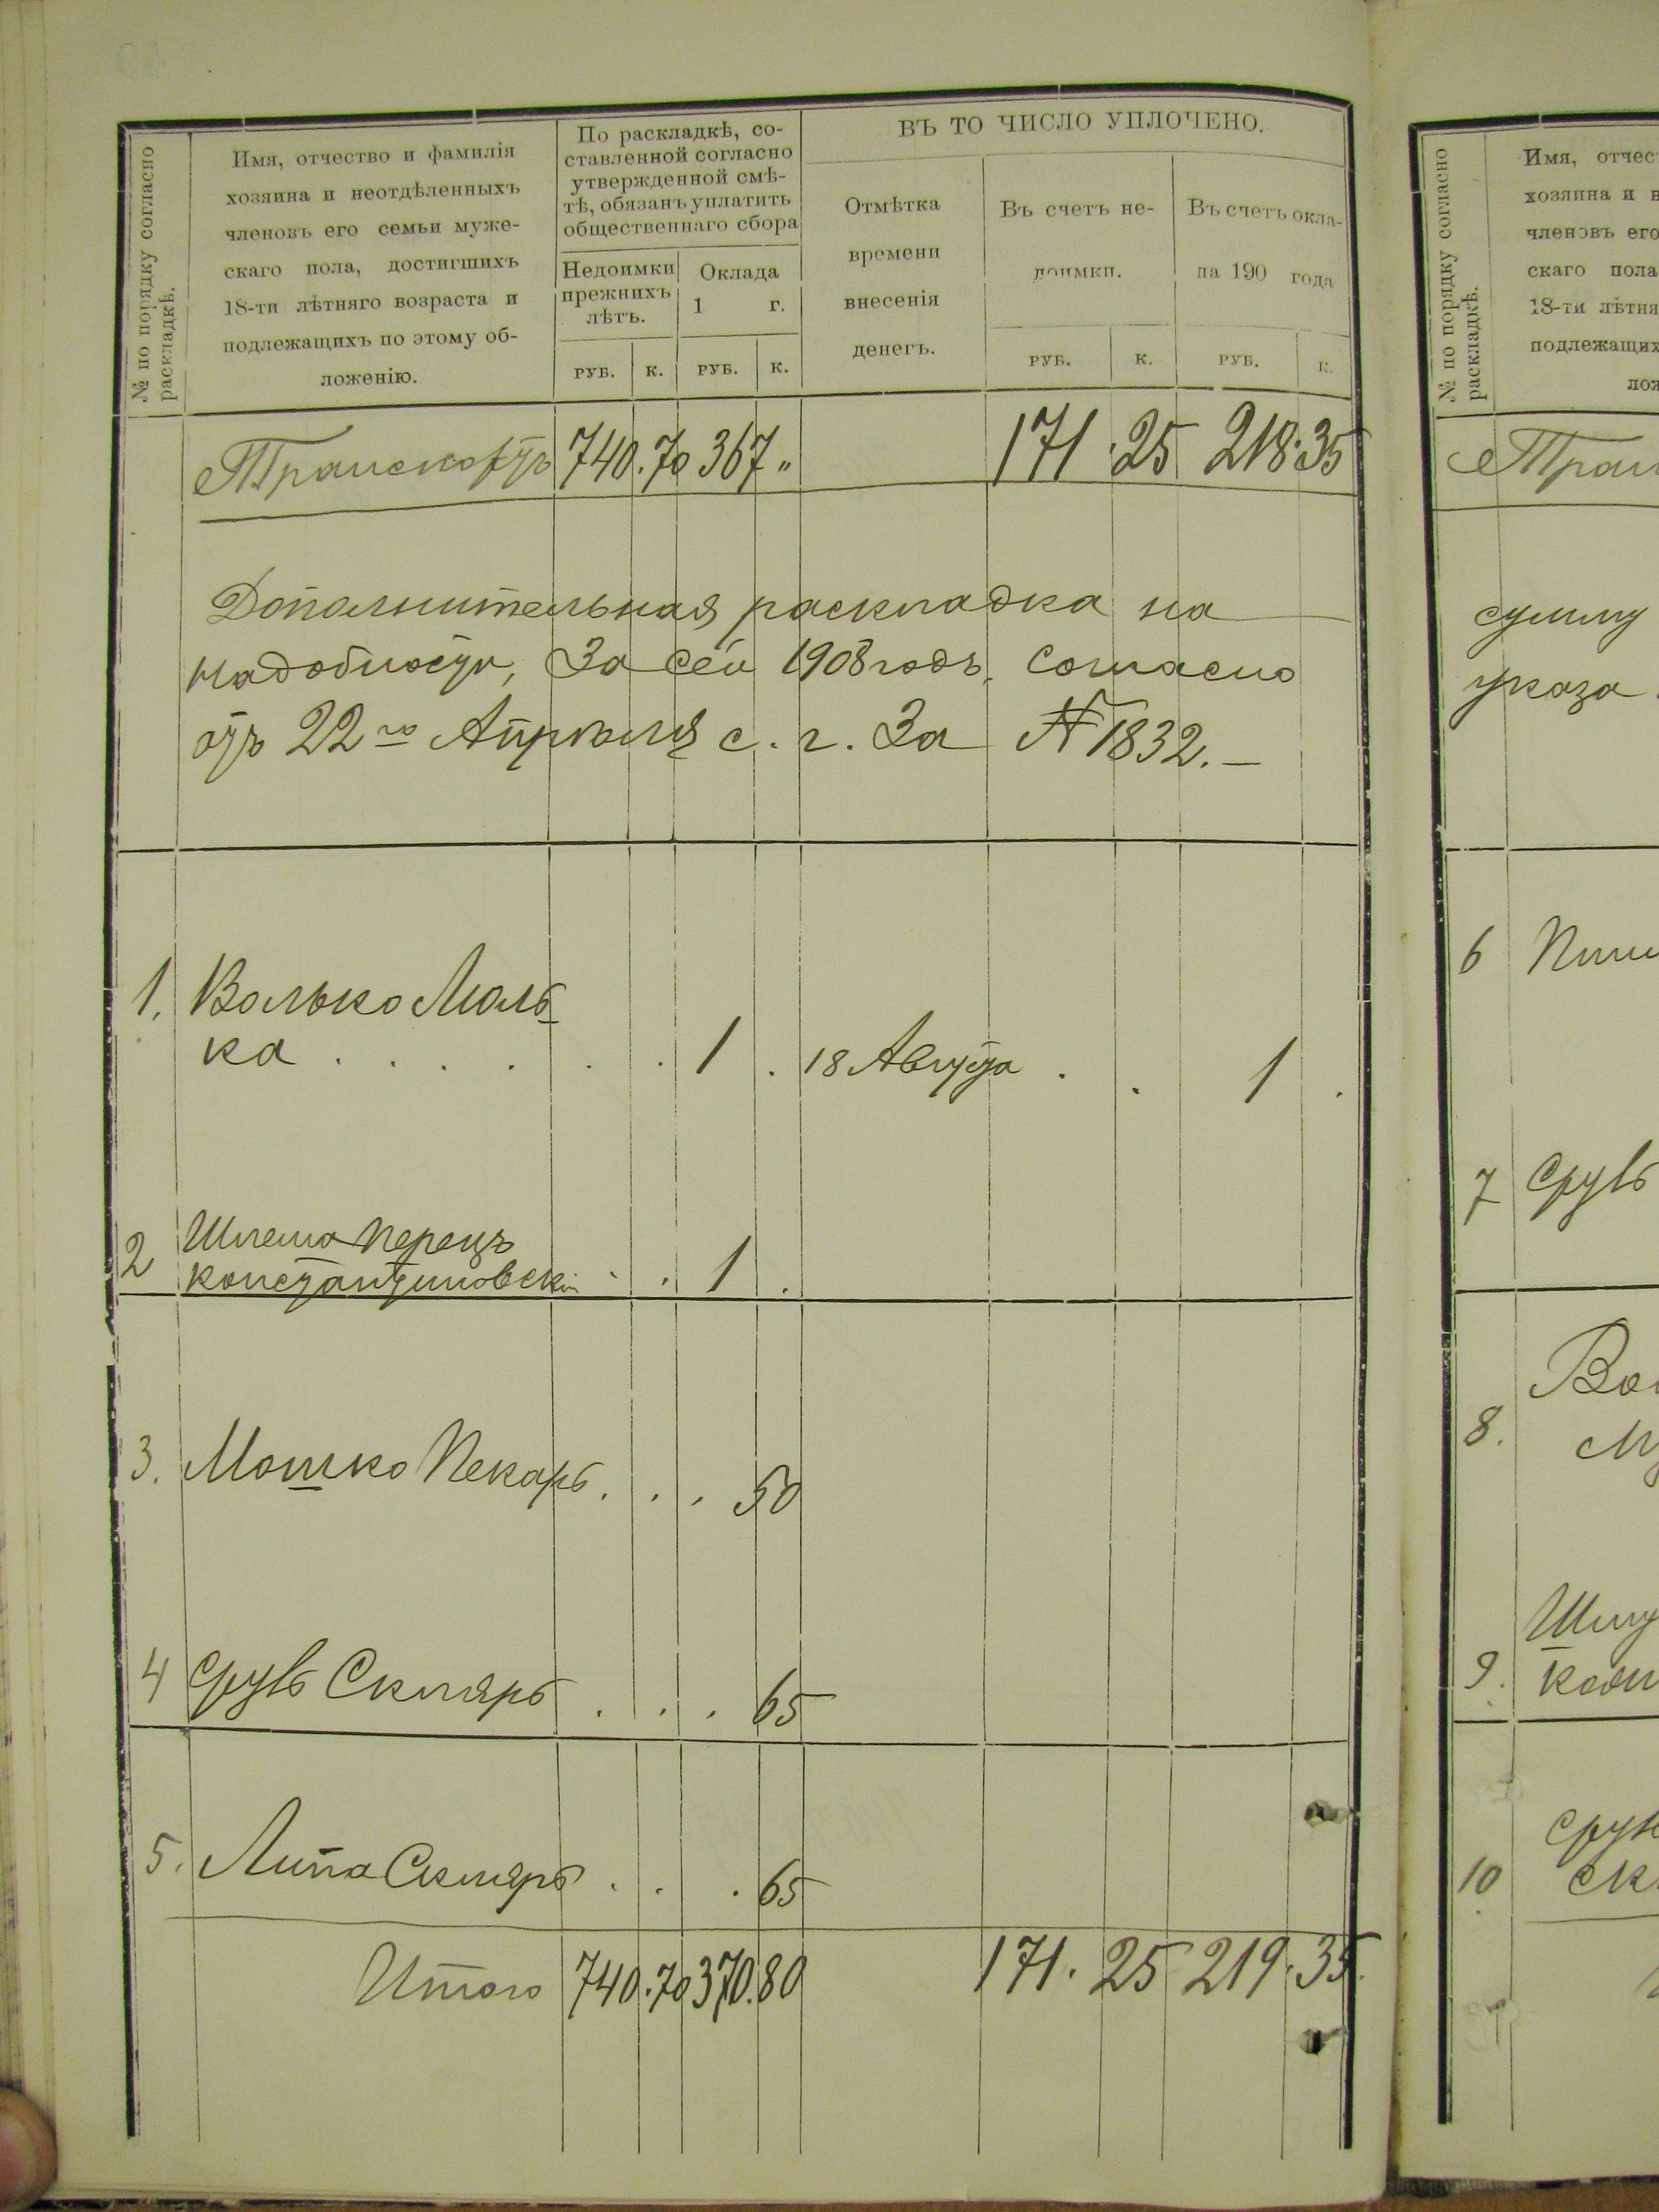 № по порядку согласно
раскладкѣ.
Имя, отчество и фамилія
хозяина и неотдѣленныхъ
членовъ его семьи муже-
скаго пола, достигшихъ
18-ти лѣтняго возраста и
подлежащихъ по этому об-
ложенію.
По раскладкѣ, со-
ставленной согласно
утвержденной смѣ-
тѣ, обязанъ уплатить
общественнаго сбора
Недоимки
прежнихъ
лѣтъ.
Оклада
1 г.
РУБ. К. РУБ. К.
ВЪ ТО ЧИСЛО УПЛОЧЕНО.
Отмѣтка
времени
внесенія
денегъ.
Въ счетъ не-
доимки.
Въ счетъ окла-
да 190 года
РУБ. К. РУБ. К.
Транспортъ 740. 70 367 „ 171. 25 218. 35
Дополнительная раскладка на
надобности, За сей 1908 годъ, Согласно
отъ 22го Апрѣля с. г. За № 1832. —
1. Волько Люль-
ка . . . . . 1 . 18 Августа . . 1 .
2 Шлема Перецъ
Константиновскій . . 1 .
3. Мошко Пекарь . . . 50
4 Сруль Скляръ . . . 65
5. Липа Скляръ . . . 65
Итого 740. 70 370. 80 171. 25 219. 35.
№ по порядку согласно
раскладкѣ.
Имя, отчес
хозяина и н
членовъ его
скаго пола
18-ти лѣтня
подлежащихъ
лож
Тран
сумму
указа
6
7 Сруль
8.
9.
10